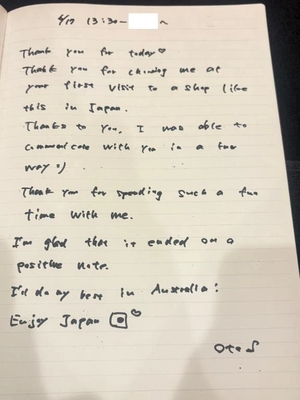 4/17 13:30-
Thank you for today♡
Thank you for choosing me at
your first visit to a shop like
this in Japan.
Thanks to you, I was able to
communicate with you in a fun
way :)
Thank you for spending such a fun
time with me.
I'm glad that it ended on a
positive note.
I'll do my best in Australia!
Enjoy Japan